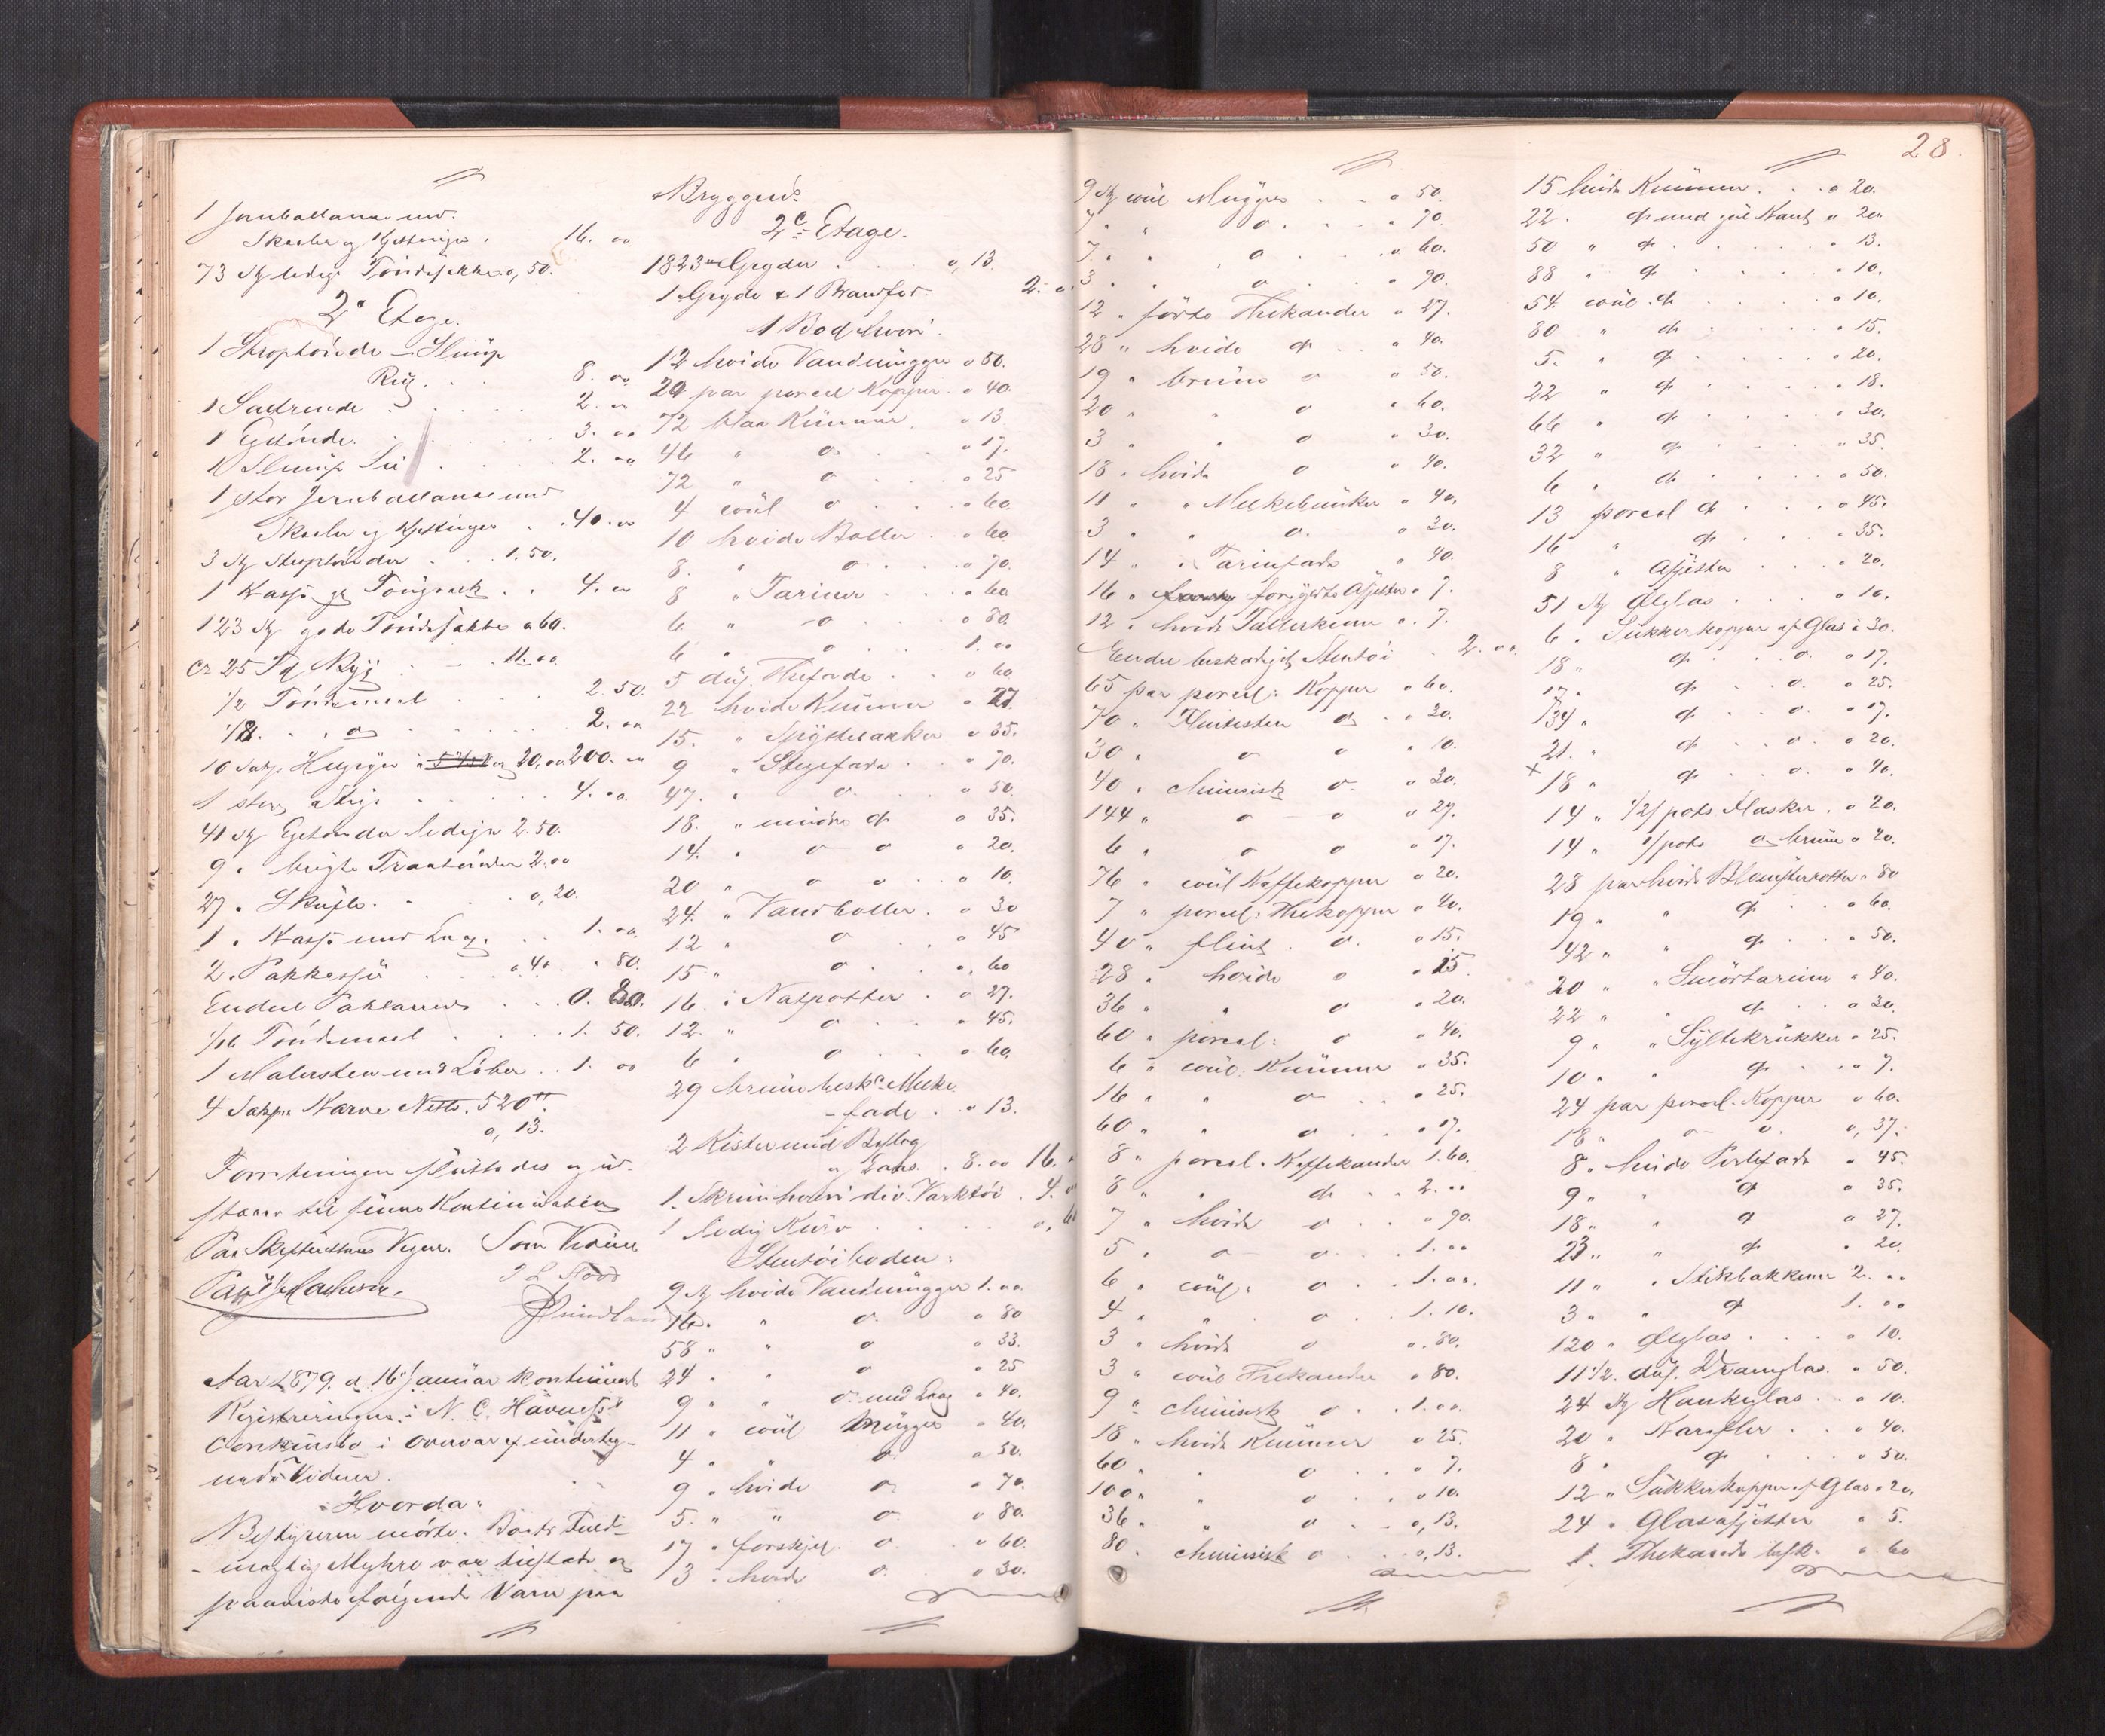 1 Jernballanse med
Skaaler og Kjettinger . 16. oo
73 St ledige Töndesækker o, 50.
2n Etage.
1 Siroptönde – Slump
Rug. . 8. oo
1 Saltrende . . 2. oo
1 Egetönde. . . 3. oo
1 Slump . . 2. oo
1 stor Jernballanse med
Skaaler og Kjettinger . . 40. oo
3 St Siroptönder . . 1. 50.
1 Kasse gl Tougværk . . 4. oo
123 St gode Töndesækker a 60.
ca 25 Td Byg . . 11. oo
1/2 Töndemaal . . 2. 50.
1/8. . do . . 2. oo
10 Sækk. 20, oo 200. oo
1 stor Stige . . 4. oo.
41 St Egetönder ledige 2. 50.
9 " brugte Trantönder 2. oo
27 " Skufle . . o, 20.
1 " Kasse med Laag . . 1. oo.
2 " Pakkasser . . o 40. . 80.
Endel Paklærred . . 0. 80.
1/16 Töndemaal . . . 1. 50.
1 Malersten med Löber . . 1. oo
4 Sække Karve Netto. 520 tt
o, 13.
Forretningen sluttedes og ud-
stáar til senere Kontinuation
Paa Skifterettens Vegne. Som Vidner
J L Flood
Aar 1879. d 16 Januar kontinueret
Registreringen i N. C. Havnefs
Conkursbo i Overvær af underteg-
nede Vidner.
Hvorda:
Bestyreren mödte. Boets Fuld-
- mægtig Myhre var tilstede og
paaviste fölgende Varer paa
Bryggens
2e Etage.
1823 St Gryder . . o, 13.
1 Gryde & 1 Brandfad. 2. oo
1 Bod hvori.
12 hvide Vandmugger o 50.
24 par porcel Kopper . o 40.
72 blaa Kummer . o 13
46 " o . . o 17.
72 " o . . o 25
4 coul o . . o 60.
10 hvide Boller . . o 60
8. " o . . o 70.
8 " Tariner . . o 60
6 " o . . o 80.
6 " o . . 1. oo
5 dus. Thefade . . o 60
22 hvide Kummer o 27.
15. " Spyttebakker o 35.
9 " Stegefade . . o 70.
47. " o . . o 50.
18. " mindre do o 35.
14. " o o o 20.
20 " o o . . o 10.
24. " Vandboller . o 30
12 " o . . o 45
15 " o . . o. 60
16. " Natpotter . o 27.
12. " o . . o 45.
6 " o . . o 60.
29 brune besk. Melke-
- fade . . o 13.
2 Kister med Beslag
og Laas. . 8. oo 16. oo
1. Skrin hvori div. Værktöi . 4. oo
1 ledig Kurv . . . o. 60
Stentöiboden:
9 St hvide Vandmugger 1. oo
16. " " o. o 80
58 " " o o 33.
24 " " o o 25
9 " " o. med Laag o 40.
11 " coul Mugger o 40.
4 " " o o 50.
9 " hvide o. o 70.
5. " " o. o 80.
17 " forskjel. o. . o 60.
13 " hvide o. o 30.
28.
9 St coul Mugger . . o 50.
7 " " o . . o 70.
7 " " o . . o 60.
3 " " o . . o 90.
12 " förte Thekander o 27.
28 " hvide do . . o 40.
19 " brune o o 50.
20 " " o o 60.
3 " " o o 30.
18 " hvide o o 40.
11 " " Melkebunker o 40.
3 " " o. o 30.
14 " " Tarinfade o 40.
16 " forgyldte Asjetter o 7.
12 " hvide Tallerkener o. 7.
Endel beskadiget Stentöi . 2. oo.
65 par porcel: Kopper o 60.
70 " Flintesten do . . o 20.
30 " o o o 10.
40 " chinesisk o. o 20.
144 " o – o o 27.
6 " o o o 17.
76 " coul Kaffekopper o 20.
7 " porcel: Thekopper o 40.
40 " flint . o. o 15.
28 " hvide o o 15.
36 " " o o 20.
60 " porcel: o o 40.
6 " coul: Kummer o 35.
16 " " o . . o 25.
60 " " o . . o 17.
8 " porcel. Kaffekander 1. 60.
8 " " do . . 2. oo
7 " hvide o . . o 90.
5 " o o . . 1. oo
6 " coul: o . . 1. oo.
4 " " o . . 1. 10.
3 " hvide o o. 80.
3 " coul Thekander o 80.
9 " chinesisk o . . 1. oo.
18 " hvide Kummer o 25.
60 " " o . . o 7.
100 " " o . . o 10.
36 " " o . . o, 13.
80 " chinesisk o . . o, 13.
15 hvide Kummer . . o 20.
22. " do med gul Kant o 20.
50 " do . . . o 13.
88 " do . . . o 10.
54. coul. do . . . o 10.
80 " do . . . o 15.
5. " do . . . o 20.
22 " do . . . o 18.
66 " do . . . o 30.
32 " do . . . o 35.
6 " do . . . o 50.
13 porcel do . . . o 45.
16 " do . . . o 35.
8 " Asjetter . . . o 20.
51 St Ölglas . . . o 10.
6 " Sukkerkopper af Glas à 30.
18 " do . . o. o 17.
17 " do . . o. o 25.
134 " do . . o. o 17.
21. " do . . o. o 20.
x 18 " do . . o. o 40.
14 " 1/2 pots Flasker . o 20.
14 " 1/ pots o brune o 20.
28 par hvide Blomsterpotter o 80
19 " " do . . o 60.
42 " " do . . o 50.
20 " " Smörtariner o 40.
22 " " do . . o 30.
9 " " Syltekrukker o 25.
10 " " do . . o 7.
24 par porcel. Kopper o 60.
18 " o – o. o, 37.
8 " hvide Perlefade o 45.
9 " " do o 35.
18 " " do o 27.
23 " " do o 20.
11 " " Stikbækkener 2. oo
3 " " do 1. oo
120 " Ölglas . . . o 10.
11 1/2. dus. Dramglas. o 50.
24 St Hankeglas . . o 10.
20 " Karafler . . o 40.
8 " do . . o 50.
12 " Sukkerkopper af Glas o 20.
24 " Glasasjetter o 5.
1. Thekande besk. o 60